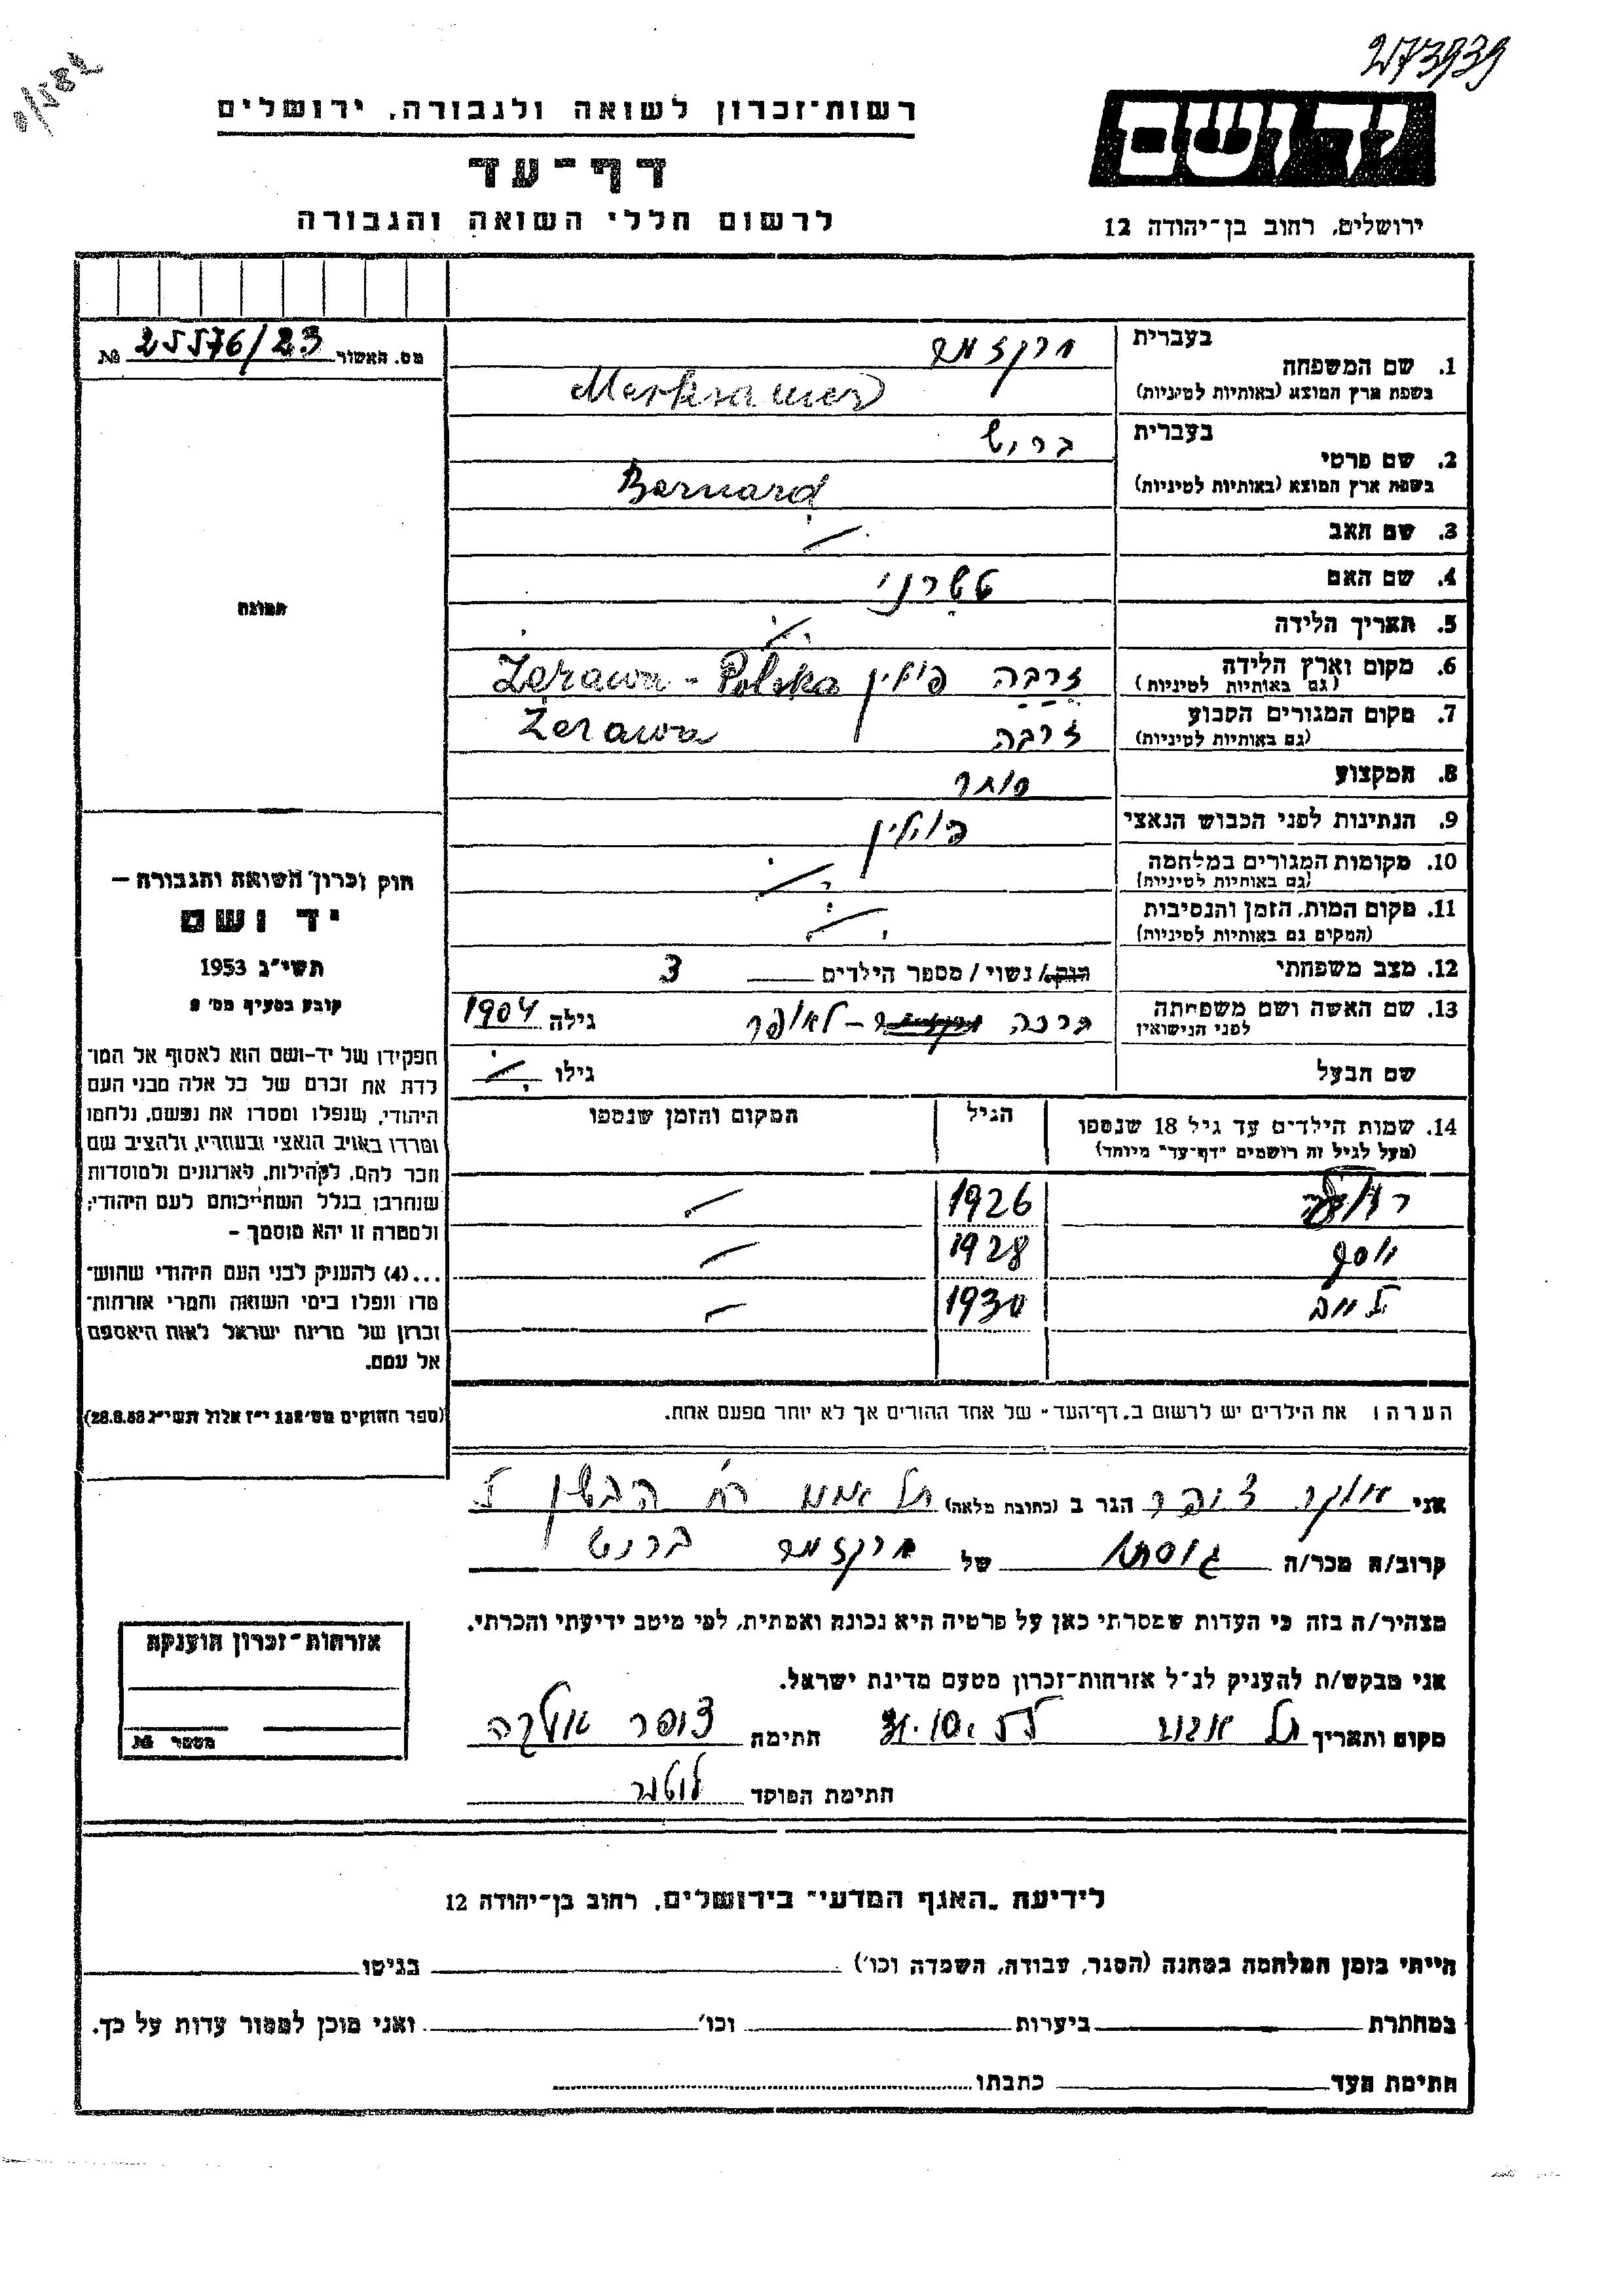 273939
רשות־זכרון לשואה ולגבורה, ירושלים
יד ושם
דף־עד
לרשום חללי השואה והגבורה
ירושלים, רחוב בן־יהודה 12
מס. האשור 25576/23 №
תמונה
חוק זכרון השואה והגבורה —
יד ושם
תשי״ג 1953
קובע בסעיף מס׳ 2
תפקידו של יד-ושם הוא לאסוף אל המו־
לדת את זכרם של כל אלה מבני העם
היהודי, שנפלו ומסרו את נפשם, נלחמו
ומרדו באויב הנאצי ובעוזריו, ולהציב שם
וזכר להם, לקהילות, לארגונים ולמוסדות
שנחרבו בגלל השתייכותם לעם היהודי;
ולמטרה זו יהא מוסמך –
...(4) להעניק לבני העם היהודי שהוש־
מדו ונפלו בימי השואה והמרי אזרחות־
זכרון של מדינת ישראל לאות היאספם
אל עמם.
(ספר החוקים מס׳ 132 י״ז אלול תשי״ג 28.8.53)
בעברית
1. שם המשפחה
בשפת ארץ המוצא (באותיות לטיניות)
בעברית
2. שם פרטי בריש
בשפת ארץ המוצא (באותיות לטיניות) Bernard
3. שם האב –
4. שם האם
5. תאריך הלידה –
6. מקום וארץ הלידה זרבה פולין Żerawa - Polska
(גם באותיות לטיניות)
7. מקום המגורים הקבוע זרבה Żerawa
(גם באותיות לטיניות)
8. המקצוע סוחר
9. הנתינות לפני הכבוש הנאצי פולין
10. מקומות המגורים במלחמה –
(גם באותיות לטיניות)
11. מקום המות, הזמן והנסיבות –
(המקום גם באותיות לטיניות)
12. מצב משפחתי רווק/ נשוי/ מספר הילדים 3
13. שם האשה ושם משפחתה ברכה – לאופר גילה 1904
לפני הנישואין
שם הבעל גילו –
14. שמות הילדים עד גיל 18 שנספו הגיל המקום והזמן שנספו
(מעל לגיל זה רושמים ״דף־עד״ מיוחד)
1926 –
יוסף 1928 –
1930 –
הערה: את הילדים יש לרשום ב„דף־העד״ של אחד ההורים אך לא יותר מפעם אחת.
אני צופר הגר ב (כתובת מלאה)
קרוב/ה מכר/ה גיסתו של
מצהיר/ה בזה כי העדות שמסרתי כאן על פרטיה היא נכונה ואמתית, לפי מיטב ידיעתי והכרתי.
אני מבקש/ת להעניק לנ״ל אזרחות־זכרון מטעם מדינת ישראל.
מקום ותאריך תל אביב 31.10.55 חתימה צופר
חתימת הפוקד
אזרחות־זכרון הוענקה
מספר №
לידיעת „האגף המדעי״ בירושלים, רחוב בן־יהודה 12
הייתי בזמן המלחמה במחנה (הסגר, עבודה, השמדה וכו׳) בגיטו
במחתרת ביערות וכו׳ ואני מוכן למסור עדות על כך.
חתימת העד כתבתו